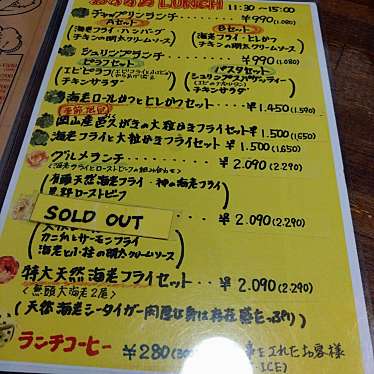 LUNCH 11:30~15:00
チャップリンランチ ¥990(1.080)
Aセット
Bセット
海老フライ・ハンバーグ
チキンの明太クリームソース
海老フライ・ヒレかつ
チキンの明太クリームソース
シュリンプランチ ¥990(1.080)
ピラフセット
パスタセット
エビピラフ
チキンサラダ
シュリンプスパゲッティー
チキンサラダ
海老ロールかつとヒレかつセット ¥1.450(1.590)
季節限定
岡山産 かきの大粒かきフライセット ¥1.500(1.650)
海老フライと大粒かきフライセット ¥1.500(1.650)
グルメランチ ¥2.090(2.290)
<海老フライとローストビーフの組み合わせ>
有頭天然海老フライ・神の海老フライ
ローストビーフ
SOLD OUT ¥2.090(2.290)
カニ爪とサーモンフライ
海老と小柱の明太クリームソース
特大天然海老フライセット ¥2.090(2.290)
<無頭大海老2尾>
(天然海老シータイガー肉厚な身は存在感たっぷり)
ランチコーヒー ¥280
をされたお客様
ICE)